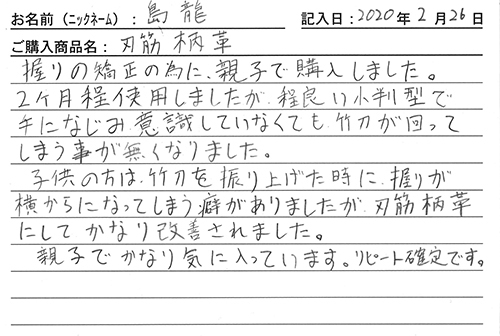 お名前（ニックネーム）：島龍 記入日：2020年2月26日
ご購入商品名：刃筋柄革
握りの矯正の為に、親子で購入しました。
2ヶ月程使用しましたが、程良い小判型で
手になじみ、意識していなくても、竹刀が回って
しまう事が無くなりました。
子供の方は、竹刀を振り上げた時に、握りが
横からになってしまう癖がありましたが、刃筋柄革
にしてかなり改善されました。
親子でかなり気に入っています。リピート確定です。